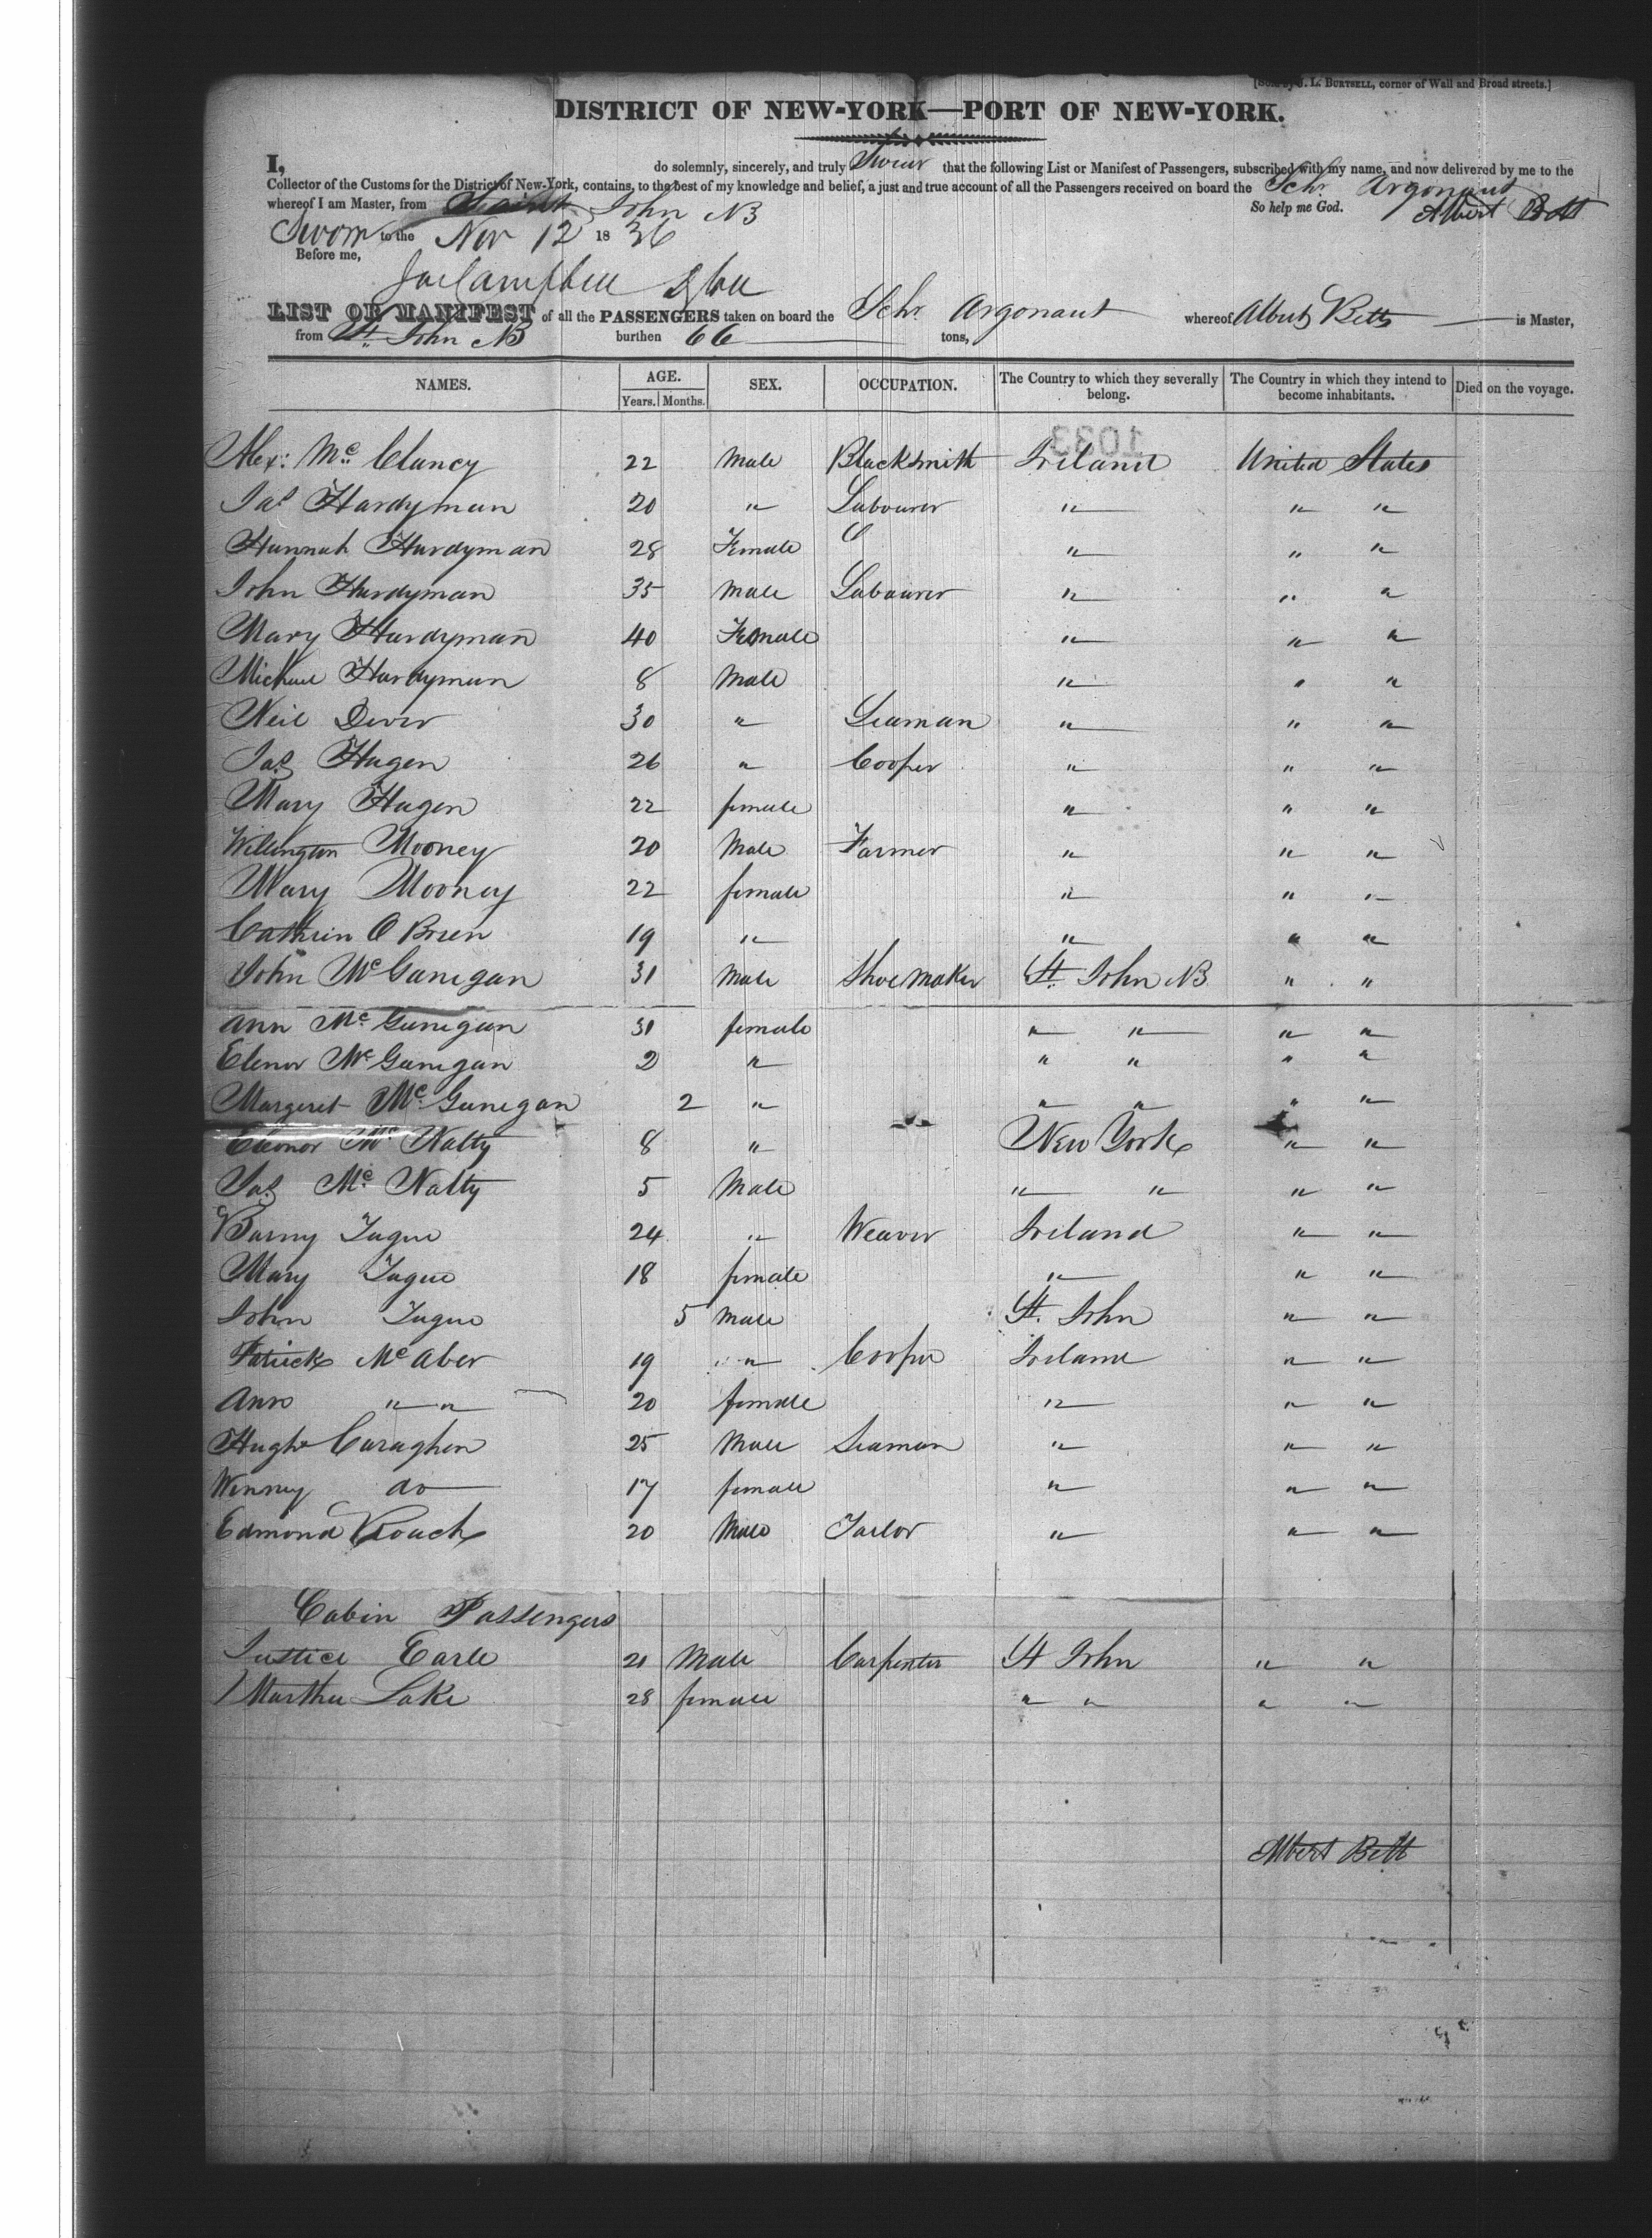 [Sold by J. L. BURTSELL, corner of Wall and Broad streets.]
DISTRICT OF NEW-YORK—PORT OF NEW-YORK.
I, do solemnly, sincerely, and truly Swear that the following List or Manifest of Passengers, subscribed with my name, and now delivered by me to the
Collector of the Customs for the District of New-York, contains, to the best of my knowledge and belief, a just and true account of all the Passengers received on board the Schr. Argonaut
whereof I am Master, from Saint John NB So help me God. Albert Betts
Sworn to the Nov 12 1836
Before me,
LIST OR MANIFEST of all the PASSENGERS taken on board the Schr. Argonaut whereof Albert Betts is Master,
from St. John NB burthen 66 tons,
NAMES. AGE. Years. Months. SEX. OCCUPATION. The Country to which they severally belong. The Country in which they intend to become inhabitants. Died on the voyage.
1033
Alex: Mc Clancy 22 Male Blacksmith Ireland United States
Jas Hardyman 20 " Labourer " " "
Hannah Hardyman 28 Female " " "
John Hardyman 35 Male Labourer " " "
Mary Hardyman 40 Female " " "
Michael Hardyman 8 Male " " "
Neil Dever 30 " Seaman " " "
Jas Hagen 26 " Cooper " " "
Mary Hagen 22 female " " "
Willington Mooney 20 Male Farmer " " "
Mary Mooney 22 female " " "
Cathrin O Brien 19 " " " "
John McGanegan 31 Male Shoemaker St. John NB " "
Ann Mc Ganegan 31 female " " " "
Elenor Mc Ganegan 2 " " " " "
Margeret Mc Ganegan 2 " " " " "
Eleonor Mc Nalty 8 " New York " "
Jas Mc Nalty 5 Male " " " "
Barny Tague 24 " Weaver Ireland " "
Mary Tague 18 female " " "
John Tague 5 Male St. John " "
Patrick Mc Aber 19 " Cooper Ireland " "
Ann " " 20 female " " "
Hugh Caraghen 25 Male Seaman " " "
Winney do 17 female " " "
Edmond Roach 20 Male Tailor " " "
Cabin Passengers
Justice Earle 21 Male Carpenter St John " "
Martha Lake 28 female " " " "
Albert Betts